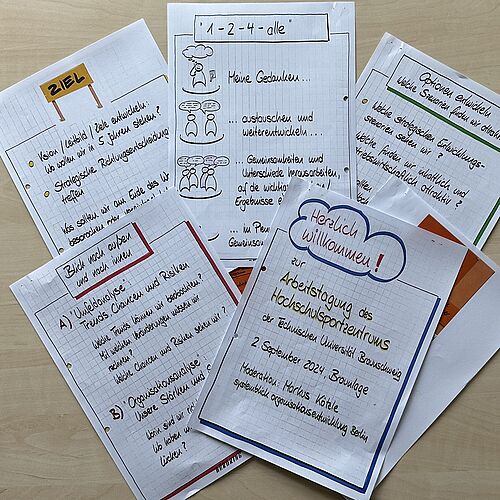 ZIEL
Vision / Leitbild / Ziele entwickeln:
Wo wollen wir in 5 Jahren stehen?
Strategische Richtungsentscheidung
treffen
Was sollen wir am Ende des
besprochen
"1-2-4-alle"
Meine Gedanken...
... austauschen und
weiterentwickeln...
... Gemeinsamkeiten und
Unterschiede herausarbeiten,
auf die
Ergebnisse
... im
Optionen entwickeln
Welche strategischen Entwicklungs-
wir?
Welche finden wir inhaltlich und
attraktiv?
Blick nach außen
und nach innen
A) Umfeldanalyse:
Trends Chancen und Risiken
Welche Trends können wir beobachten?
Mit welchen Veränderungen müssen wir
rechnen?
Welche Chancen und Risiken sehen wir?
B) Organisationsanalyse
Unsere Stärken und
Worin sind wir
Wo haben
Lücken?
Herzlich
willkommen!
zur
Arbeitstagung des
Hochschulsportzentrums
der Technischen Universität Braunschweig
2. September 2024, Braunlage
Moderation: Markus Kötzle
systemblick organisationsentwicklung Berlin